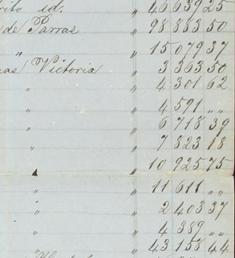 rito id. " 46 639 25
de Parras " 98 883 50
" " 15 079 37
as Victoria " 3 363 50
" " 4 301 62
" " 4 591 " "
" " 6 718 39
" " 7 823 18
" " 10 925 75
" " 11 611 " "
" " 2 408 37
" " 4 389 " "
" " 43 158 44